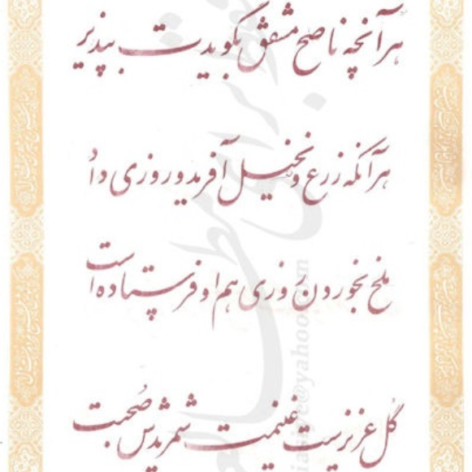 هر آنچه ناصح مشفق بگویدت بپذیر
هر آنکه زرع و نخیل آفرید و روزی داد
ملخ بخوردن روزی هم او فرستاده است
گل عزیزست غنیمت شمریدش صحبت